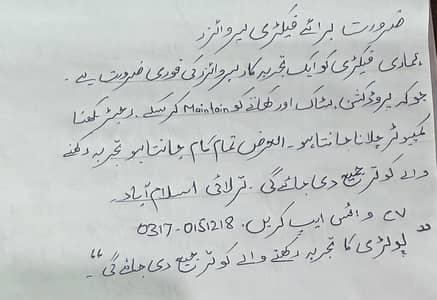 ضرورت برائے فیکٹری سپروائزر
ہماری فیکٹری کو ایک تجربہ کار سپروائزر کی فوری ضرورت ہے۔
جو کہ پروڈکشن، سٹاک اور کھاتے کو Maintain کر سکے۔ رجسٹر لکھنا
کمپیوٹر چلانا جانتا ہو۔ الغرض تمام کام جانتا ہو تجربہ رکھنے
والے کو ترجیح دی جائے گی۔ ترلائی اسلام آباد۔
CV واٹس ایپ کریں۔ 0317-0151218
"پولٹری کا تجربہ رکھنے والے کو ترجیح دی جائے گی"۔